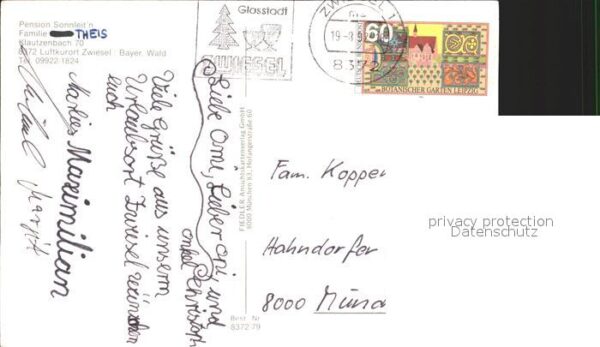 Pension Sonnleit'n
Familie THEIS
Klautzenbach 70
8372 Luftkurort Zwiesel / Bayer. Wald
Tel. 09922-1824
Glasstadt
ZWIESEL
ZWIESEL 1
8372
60
BOTANISCHER GARTEN LEIPZIG
Liebe Omi, Lieber Opi, und
onkel Christoph
Viele Grüße aus unserm
Urlaubsort Zwiesel wünschen
euch
Marlies Maximilian
Michael Margit
FIEDLER Ansichtskartenverlag GmbH
8000 München 83,
Best. Nr.
8372 79
Fam. Kopper
Hahndorfer
8000 Münc
privacy protection
Datenschutz